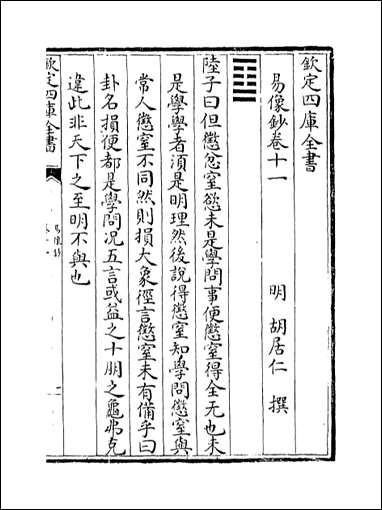 欽定四庫全書
易像鈔卷十一
明 胡居仁 撰
䷨
陸子曰但懲忿窒慾未是學問事便懲窒得全无也未
是學學者須是明理然後說得懲窒知學問懲窒與
常人懲窒不同然則損大象徑言懲窒未有備乎曰
卦名損便都是學問况五言或益之十朋之龜弗克
違此非天下之至明不與也
欽定四庫全書